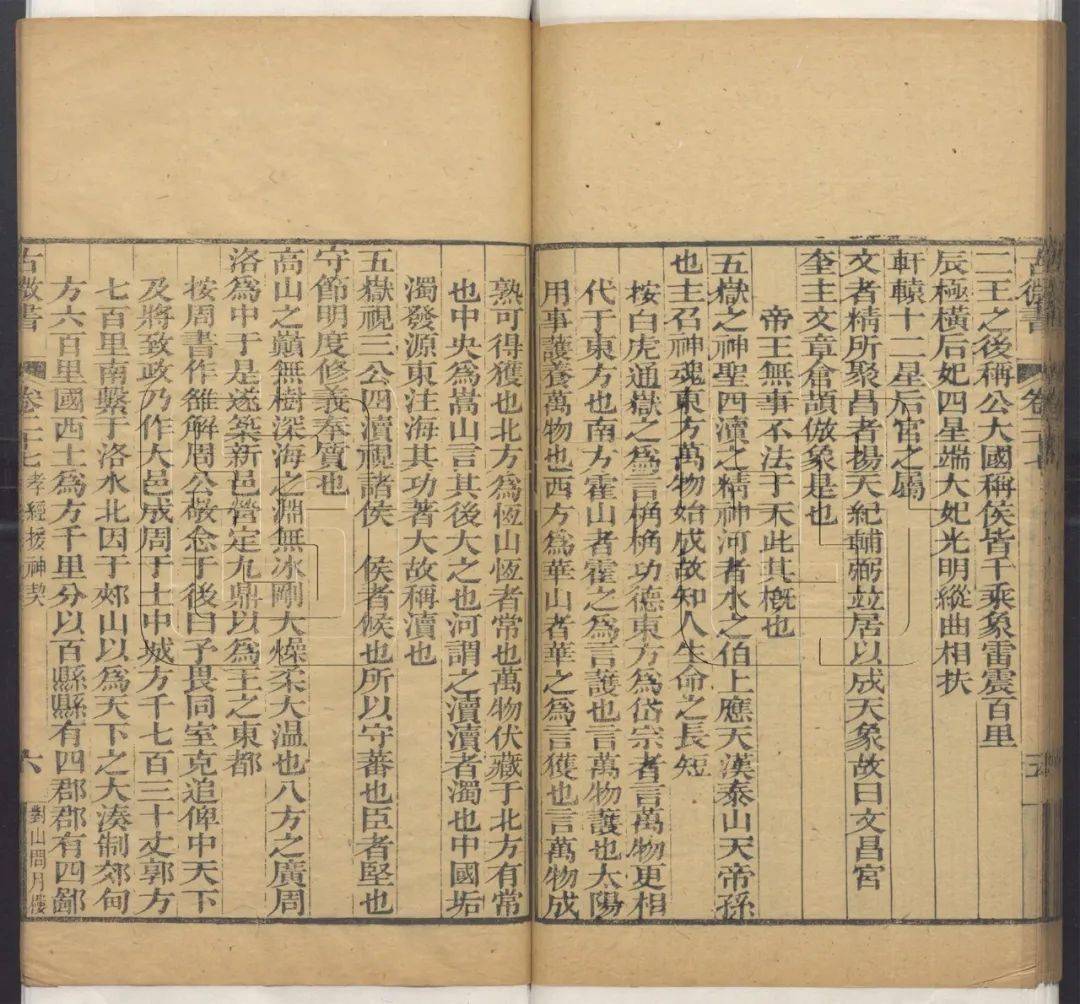 古微書 卷二十七 五
二王之後稱公大國稱侯皆千乘象雷震百里
辰極橫后妃四星端大妃光明縱曲相扶
軒轅十二星后宮之屬
文者精所聚昌者揚天紀輔弼竝居以成天象故曰文昌宮
奎主文章倉頡倣象是也
帝王無事不法于天此其槪也
五嶽之神聖四瀆之精神河者水之伯上應天漢泰山天帝孫
也主召神魂東方萬物始成故知人生命之長短
按白虎通嶽之爲言桷桷功德東方爲岱宗者言萬物更相
代于東方也南方霍山者霍之爲言護也言萬物護也太陽
用事護養萬物也西方爲華山者華之爲言獲也言萬物成
熟可得獲也北方爲恆山恆者常也萬物伏藏于北方有常
也中央爲嵩山言其後大之也河謂之瀆瀆者濁也中國垢
濁發源東注海其功著大故稱瀆也
五嶽視三公四瀆視諸侯 侯者候也所以守蕃也臣者堅也
守節明度修義奉質也
高山之巔無樹深海之淵無冰剛大燥柔大温也八方之廣周
洛爲中于是遂築新邑營定九鼎以爲王之東都
按周書作雒解周公敬念于後曰予畏同室克追俾中天下
及將致政乃作大邑成周于土中城方千七百三十丈郭方
七百里南繫于洛水北因于郟山以爲天下之大湊制郊甸
方六百里國西土爲方千里分以百縣縣有四郡郡有四鄙
古微書 卷二十七 孝經援神契 六 對山問月樓